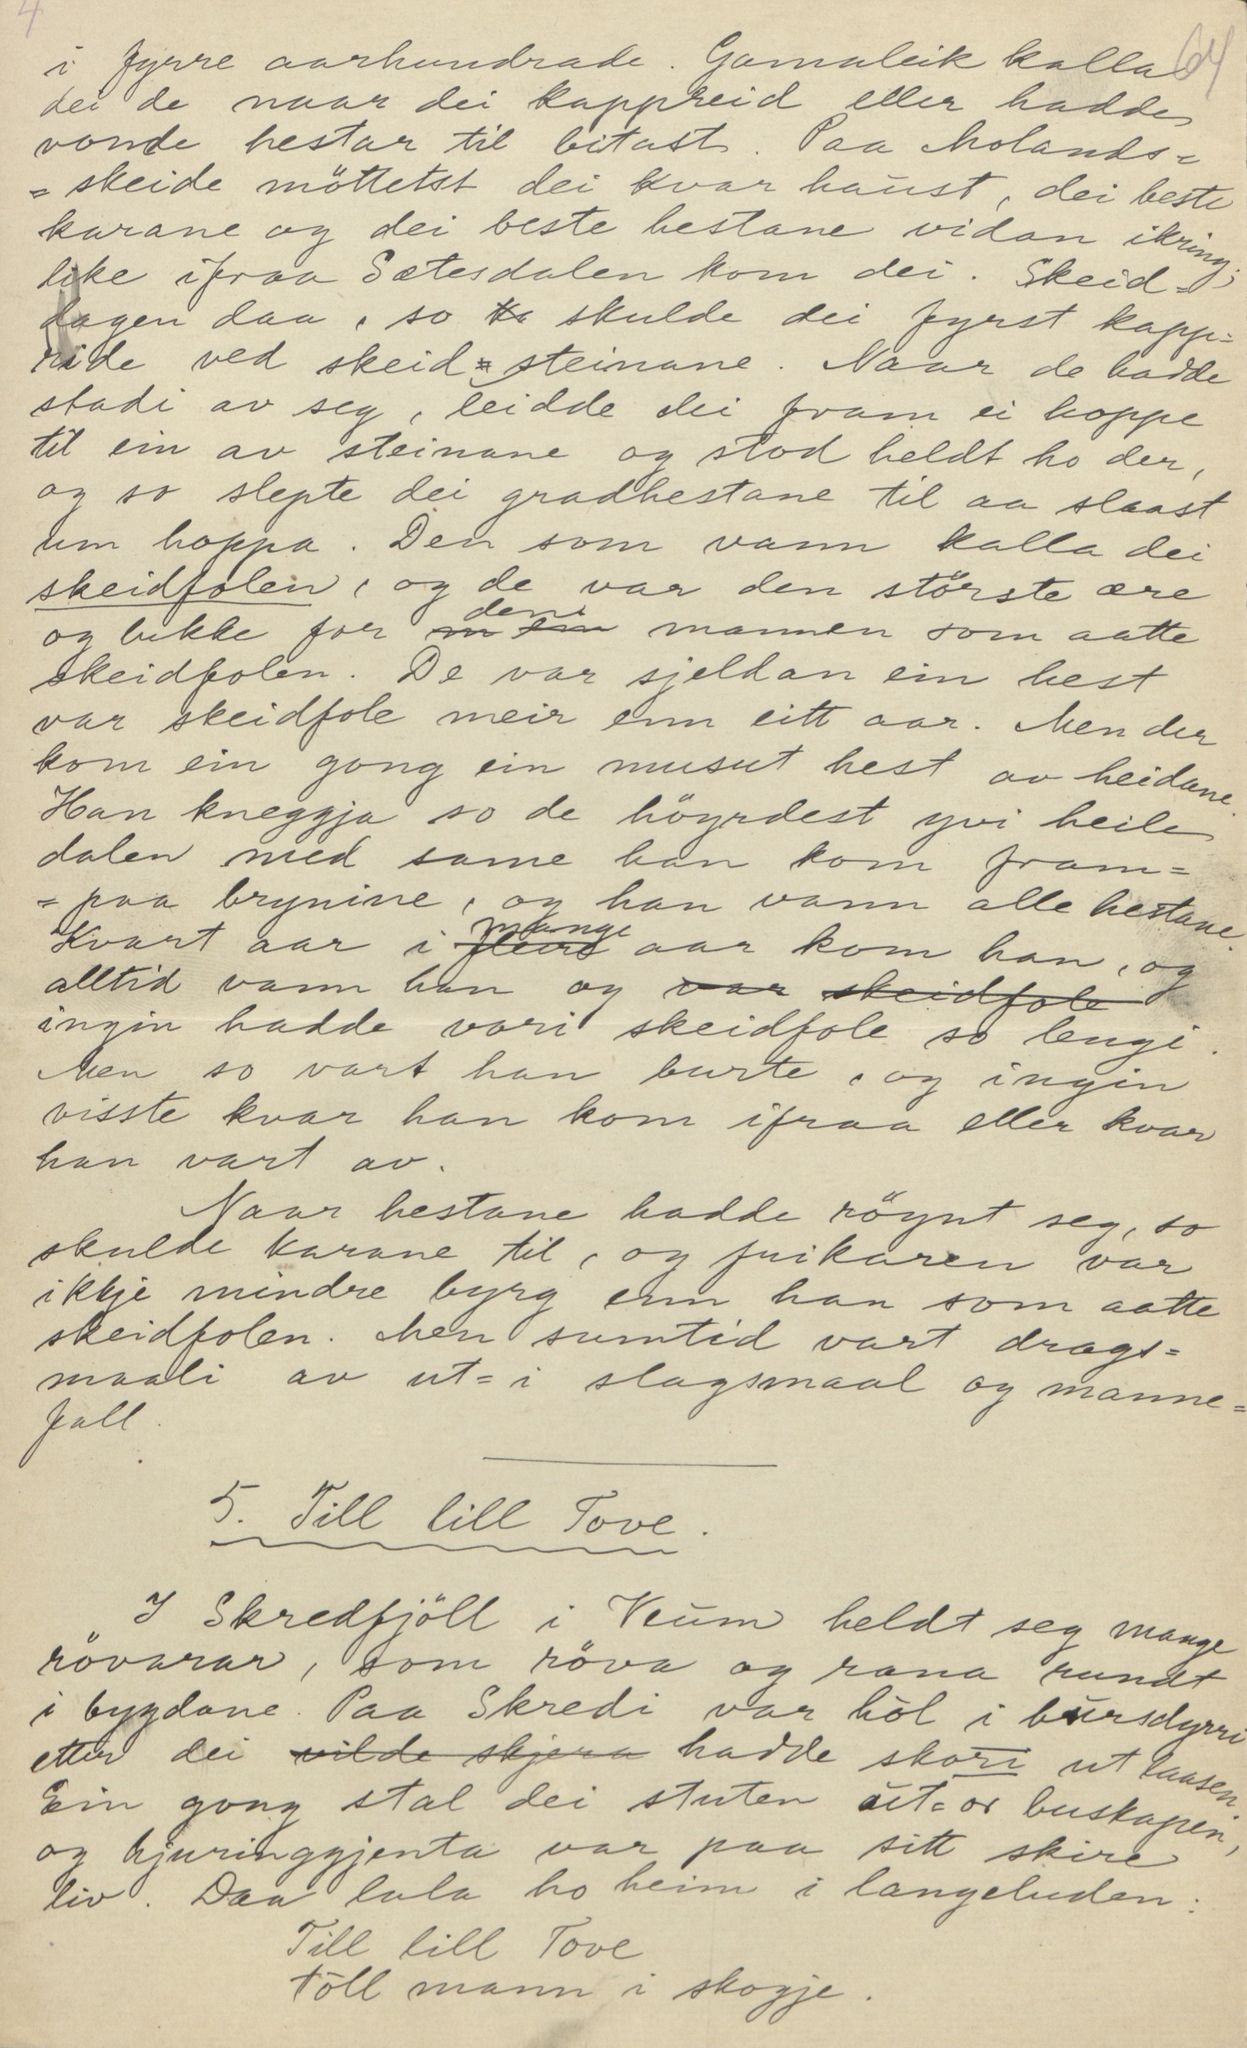 4
64
i fyrre aarhundrade. Gamaleik kalla
dei de naar dei kappreid eller hadde
vonde hestar til bitast. Paa Molands=
=skeide möttetst dei kvar haust, dei beste
karane og dei beste hestane vidan ikring;
like ifraa Sætesdalen kom dei. Skeid=
dagen daa, so ka skulde dei fyrst kapp=
ride ved skeid=steinane. Naar de hadde
stadi av seg, leidde dei fram ei hoppe
til ein av steinane og stod heldt ho der,
og so slepte dei gradhestane til aa slaast
um hoppa. Den som vann kalla dei
skeidfolen, og de var den störste ære
og lukke for den mannen som aatte
skeidfolen. De var sjeldan ein hest
var skeidfole meir enn eitt aar. Men der
kom ein gong ein musut hest av heidane.
Han kneggja so de höyrdest yvi heile
dalen med same han kom fram=
=paa brynine, og han vann alle hestane.
Kvart aar i fleire mange aar kom han, og
alltid vann han og var skeidfole
ingin hadde vori skeidfole so lengi.
Men so vart han burte, og ingin
visste kvar han kom ifraa eller kvar
han vart av.
Naar hestane hadde röynt seg, so
skulde karane til, og frikaren var
ikkje mindre byrg enn han som aatte
skeidfolen. Men sumtid vart drags=
maali av ut=i slagsmaal og manne=
fall.
5. Till lill Tove.
I Skredfjöll i Veum heldt seg mange
rövarar, som röva og rana rundt
i bygdane. Paa Skredi var hòl i bursdyrri
etter dei vilde skjera hadde skori ut laasen.
Ein gong stal dei stuten ut=or buskapen,
og hjuringgjenta var paa sitt skire
liv. Daa lula ho heim i langeluden:
Till lill Tove
töll mann i skogje.